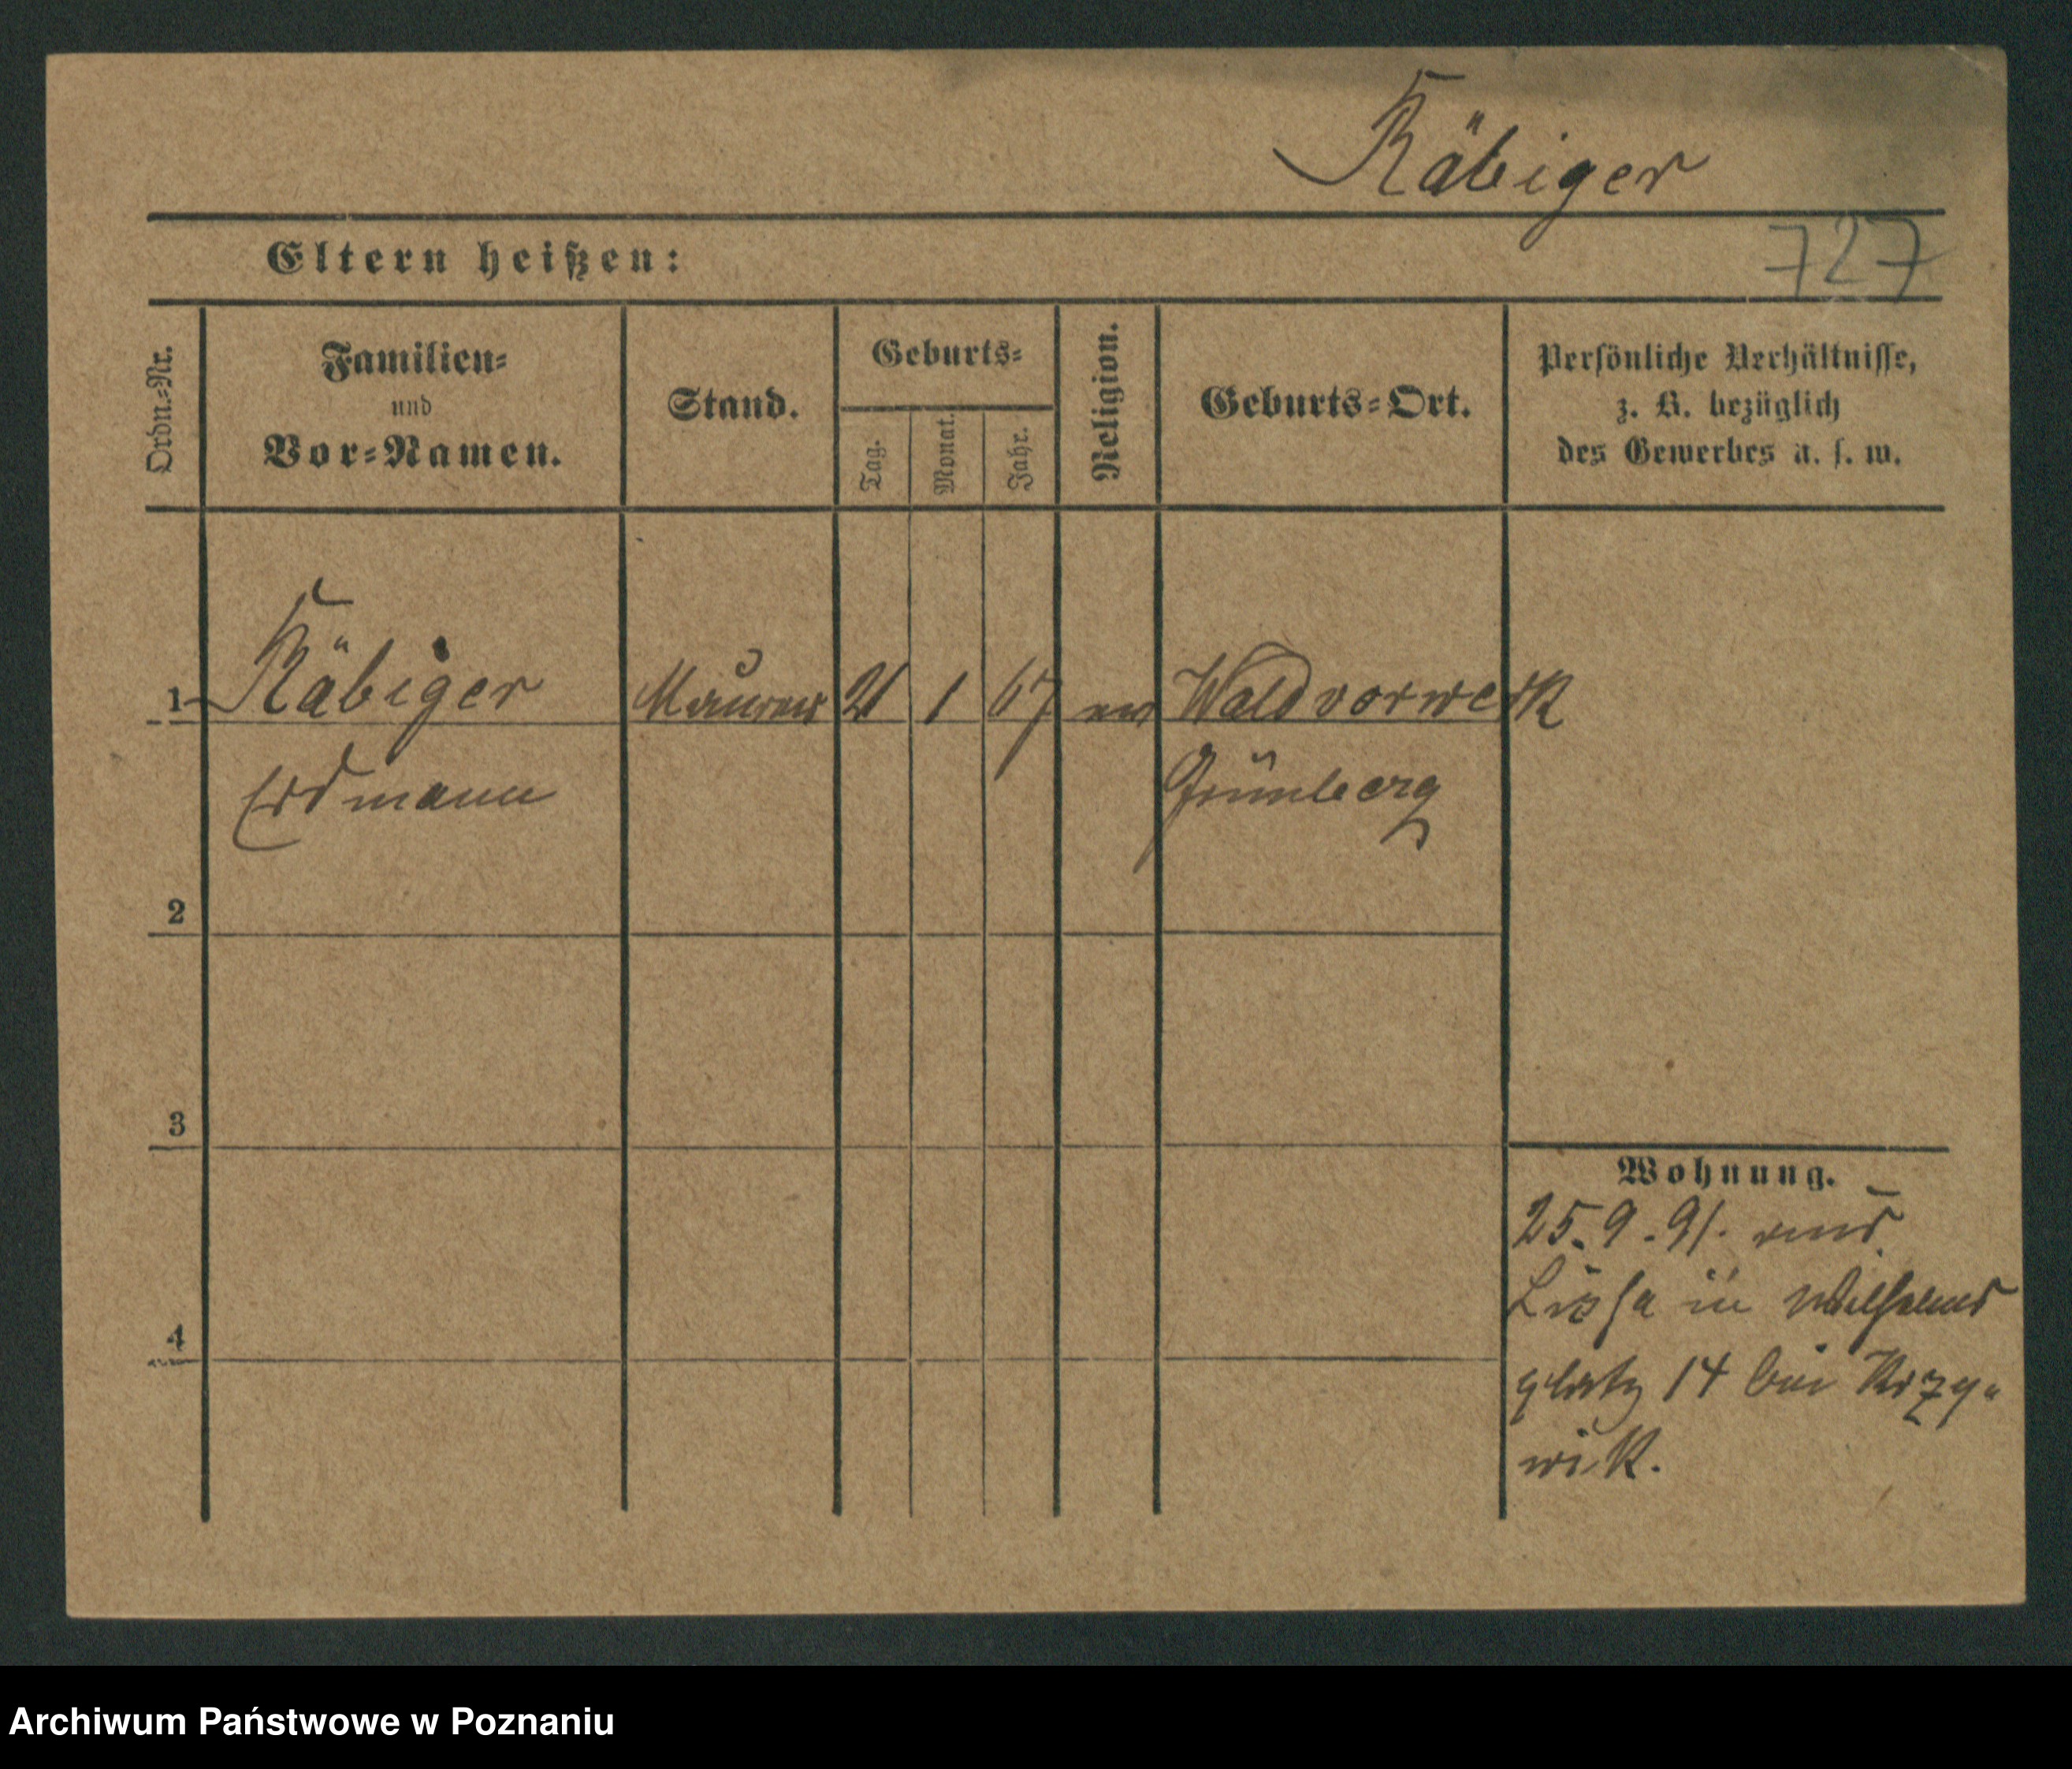 Räbiger
727
Eltern heißen:
Ordn.-Nr.
Familien-
und
Vor-Namen.
Stand.
Geburts-
Tag.
Monat.
Jahr.
Religion.
Geburts-Ort.
Persönliche Verhältnisse,
z. B. bezüglich
des Gewerbes u. s. w.
1 Räbiger Maurer 21 1 67 ev Waldvorwerk
Erdmann Grünberg
2
3
4
Wohnung.
25.9.91. aus
Lissa in Wilhelms
platz 14 bei